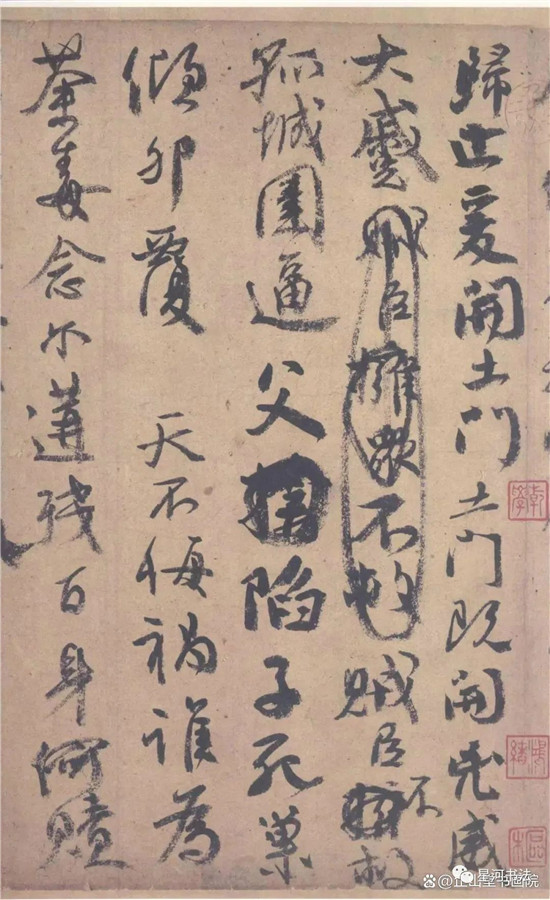 歸止爰開土門土門既開兇威
大蹙賊臣擁衆不救賊臣不救
孤城圍逼父陷子死巢
傾卵覆 天不悔禍誰為
荼毒念尓遘殘百身何贖
乾學
星河书法